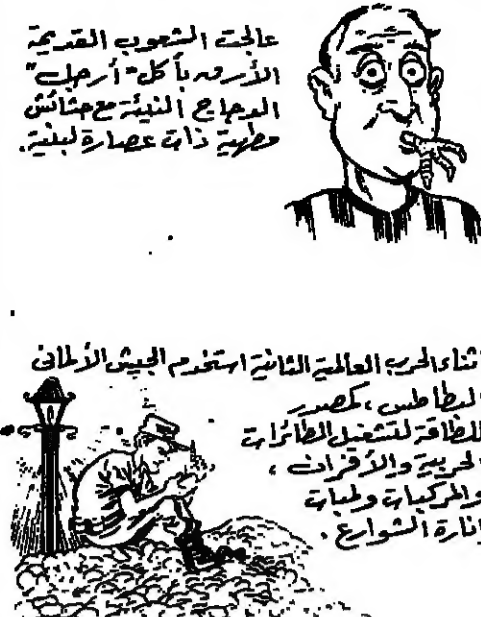 عالجت الشعوب القديمة
الأرق بأكل "أرجل"
الدجاج النيئة مع حشائش
مطهية ذات عصارة لبنية.
أثناء الحرب العالمية الثانية استخدم الجيش الألماني
البطاطس، كمصدر
للطاقة لتشغيل الطائرات
الحربية والأفران،
والمركبات ولمبات
إنارة الشوارع.